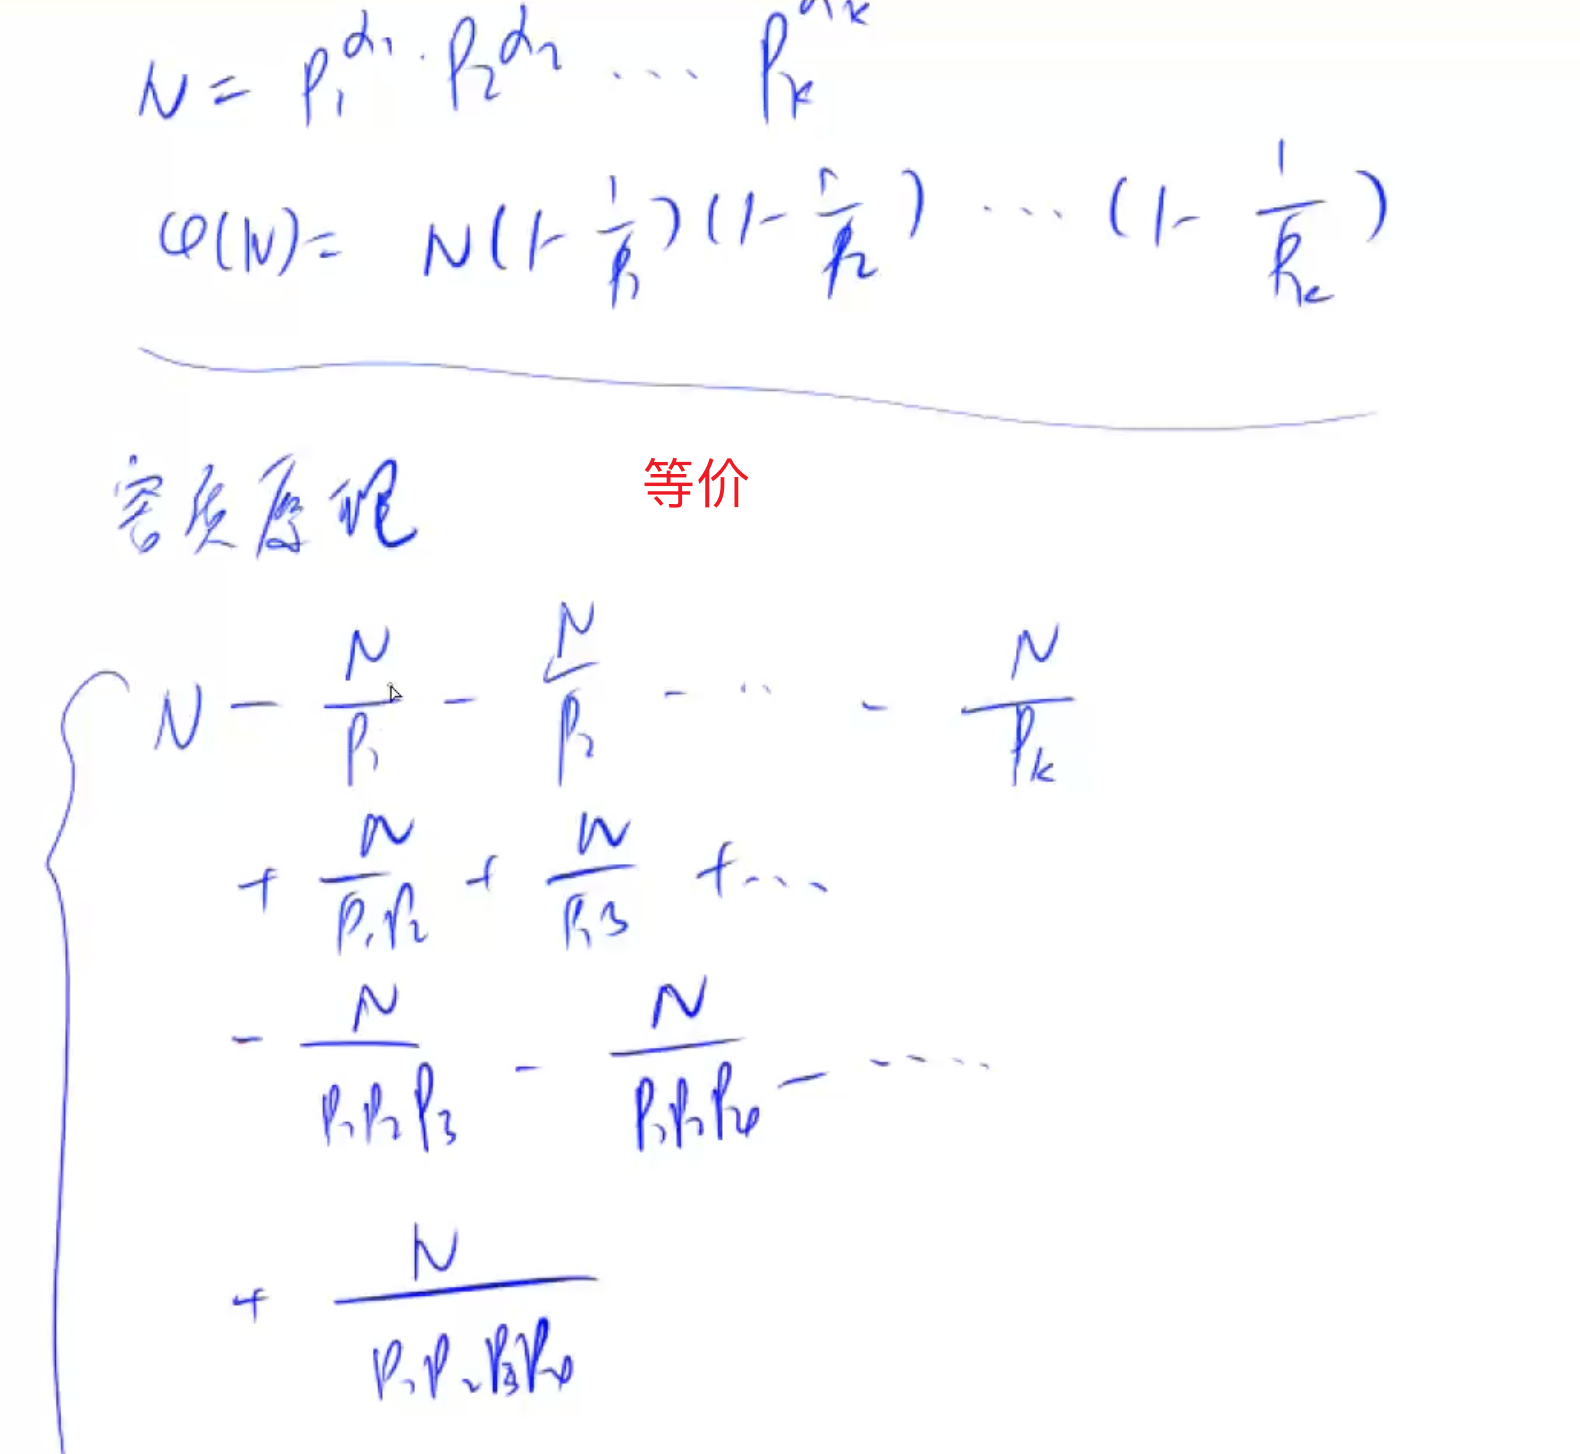 N = P₁^α₁ · P₂^α₂ ... Pₖ^αₖ
φ(N) = N(1-1/P₁)(1-1/P₂) ... (1-1/Pₖ)
容斥原理 等价
N - N/P₁ - N/P₂ - ... - N/Pₖ
+ N/P₁P₂ + N/P₁3 + ...
- N/P₁P₂P₃ - N/P₁P₂P₄ - ....
+ N/P₁P₂P₃P₄